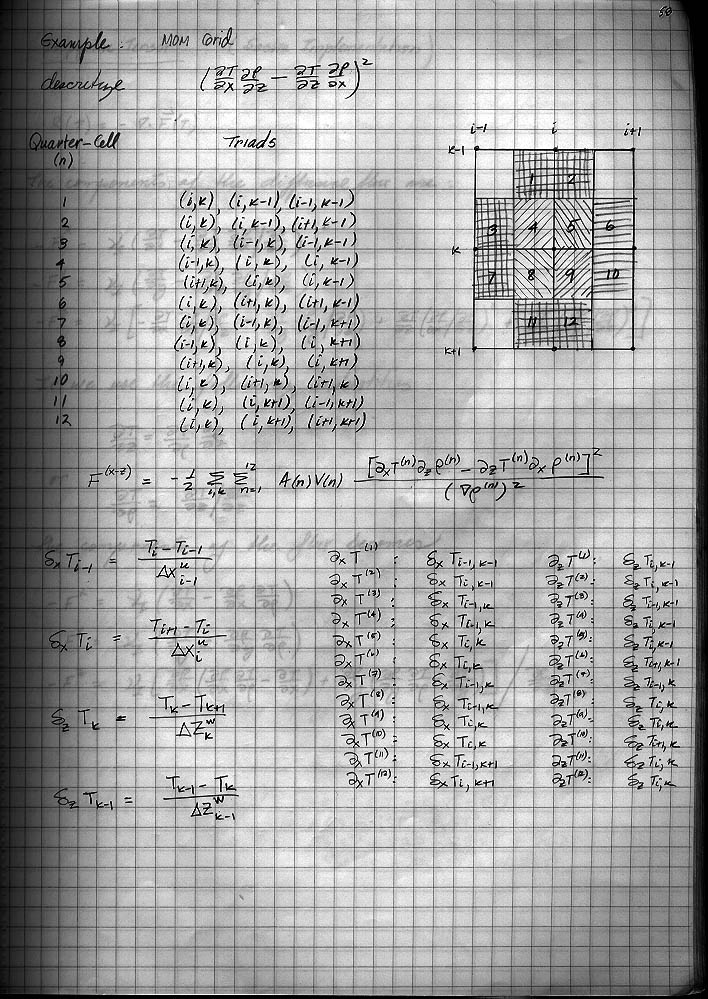 50
Example: MOM Grid
descretize (∂T/∂x ∂ρ/∂z − ∂T/∂z ∂ρ/∂x)²
Quarter-Cell (n) Triads
1 (i,k), (i,k-1), (i-1,k-1)
2 (i,k), (i,k-1), (i+1,k-1)
3 (i,k), (i-1,k), (i-1,k-1)
4 (i-1,k), (i,k), (i,k-1)
5 (i+1,k), (i,k), (i,k-1)
6 (i,k), (i+1,k), (i+1,k-1)
7 (i,k), (i-1,k), (i-1,k+1)
8 (i-1,k), (i,k), (i,k+1)
9 (i+1,k), (i,k), (i,k+1)
10 (i,k), (i+1,k), (i+1,k)
11 (i,k), (i,k+1), (i-1,k+1)
12 (i,k), (i,k+1), (i+1,k+1)
i-1 i i+1
k-1
1 2
3 4 5 6
k
7 8 9 10
11 12
k+1
F^(x-z) = −1/2 Σ_{i,k} Σ_{n=1}^{12} A(n)V(n) [∂xT^(n) ∂zρ^(n) − ∂zT^(n) ∂xρ^(n)]² / (∇ρ^(n))²
δx T_{i-1} = (T_i − T_{i-1}) / Δx^u_{i-1}
δx T_i = (T_{i+1} − T_i) / Δx^u_i
δz T_k = (T_k − T_{k+1}) / Δz^w_k
δz T_{k-1} = (T_{k-1} − T_k) / Δz^w_{k-1}
∂xT^(1): δx T_{i-1,k-1} ∂zT^(1): δz T_{i,k-1}
∂xT^(2): δx T_{i,k-1} ∂zT^(2): δz T_{i,k-1}
∂xT^(3): δx T_{i-1,k} ∂zT^(3): δz T_{i-1,k-1}
∂xT^(4): δx T_{i-1,k} ∂zT^(4): δz T_{i,k-1}
∂xT^(5): δx T_{i,k} ∂zT^(5): δz T_{i,k-1}
∂xT^(6): δx T_{i,k} ∂zT^(6): δz T_{i+1,k-1}
∂xT^(7): δx T_{i-1,k} ∂zT^(7): δz T_{i-1,k}
∂xT^(8): δx T_{i-1,k} ∂zT^(8): δz T_{i,k}
∂xT^(9): δx T_{i,k} ∂zT^(9): δz T_{i,k}
∂xT^(10): δx T_{i,k} ∂zT^(10): δz T_{i+1,k}
∂xT^(11): δx T_{i-1,k+1} ∂zT^(11): δz T_{i,k}
∂xT^(12): δx T_{i,k+1} ∂zT^(12): δz T_{i,k}